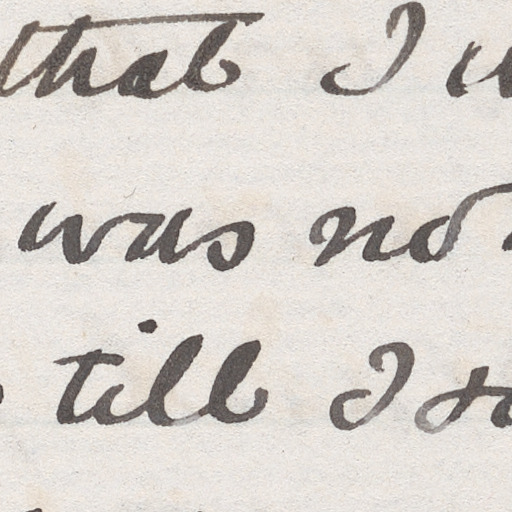 that I
was no
till I